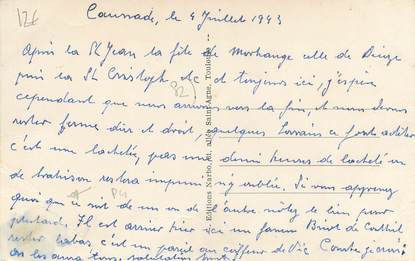 12€
Caussade, le 4 Juillet 1943
Après la St Jean la fête de Morhange celle de Dieuze
puis la St Cristoph etc et toujours ici, j'espère
82
cependant que nous arrivons vers la fin, et nous devons
rester ferme dur et droit, quelques Lorrains se font
c'est une lacheté, pas une demi heure de lacheté ou
de trahison restera impuni ni oublié. Si vous apprenez
quoi que ce soit de un ou de l'autre notez le bien pour
plus tard. Il est arrivé hier ici un fameu Binot de
rester labas c'est un pareil au coiffeur de Vic
on les aura tous, salutation
Editions Narbo, 41, allée Saint-Agne, Toulouse